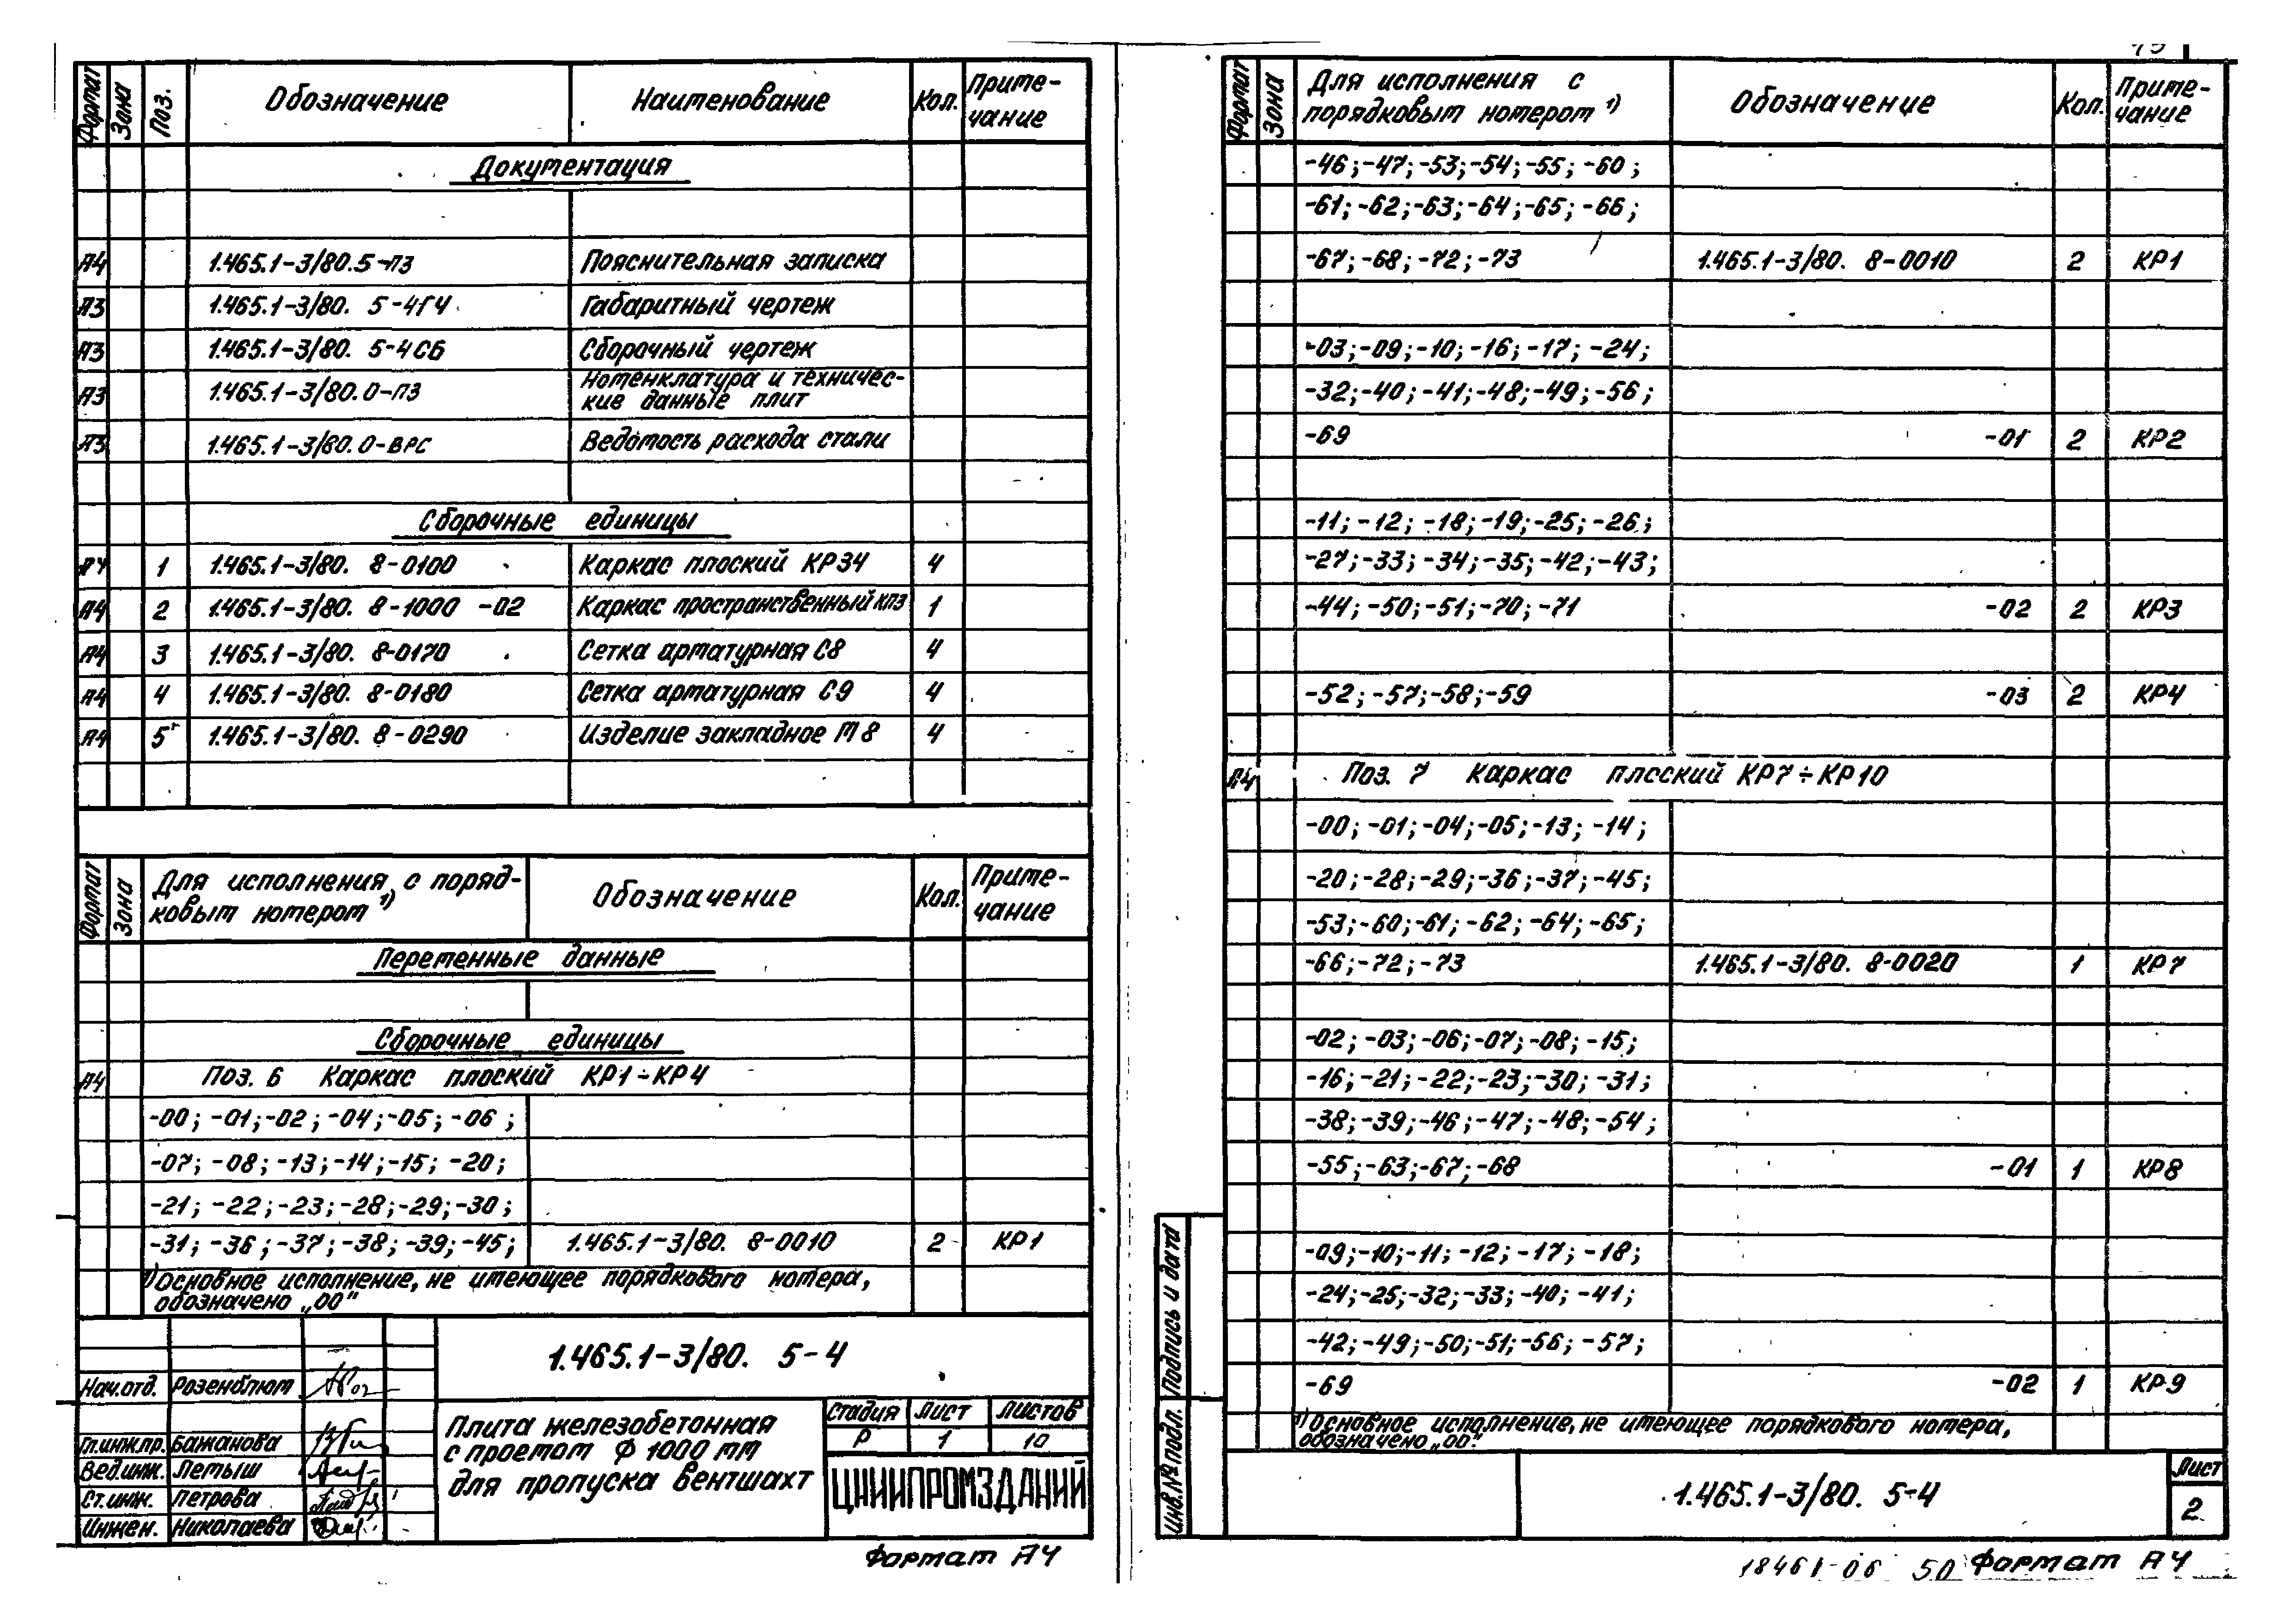 Формат Зона Поз. Обозначение Наименование Кол. Примечание
Документация
А4 1.465.1-3/80.5-ПЗ Пояснительная записка
А3 1.465.1-3/80. 5-4ГЧ Габаритный чертеж
А3 1.465.1-3/80. 5-4СБ Сборочный чертеж
А3 1.465.1-3/80.0-ПЗ Номенклатура и техничес-
кие данные плит
А3 1.465.1-3/80.0-ВРС Ведомость расхода стали
Сборочные единицы
А4 1 1.465.1-3/80. 8-0100 Каркас плоский КР34 4
А4 2 1.465.1-3/80. 8-1000 -02 Каркас пространственный КП3 1
А4 3 1.465.1-3/80. 8-0170 Сетка арматурная С8 4
А4 4 1.465.1-3/80. 8-0180 Сетка арматурная С9 4
А4 5 1.465.1-3/80. 8-0290 Изделие закладное М8 4
Формат Зона Для исполнения с поряд-
ковым номером 1) Обозначение Кол. Приме-
чание
Переменные данные
Сборочные единицы
А4 Поз. 6 Каркас плоский КР1÷КР4
-00; -01; -02; -04; -05; -06;
-07; -08; -13; -14; -15; -20;
-21; -22; -23; -28; -29; -30;
-31; -36; -37; -38; -39; -45; 1.465.1-3/80. 8-0010 2 КР1
1) Основное исполнение, не имеющее порядкового номера,
обозначено „00"
1.465.1-3/80. 5-4
Нач.отд. Розенблюм
Гл.инж.пр. Бажанова
Вед.инж. Летыш
Ст.инж. Петрова
Инжен. Николаева
Плита железобетонная
с проемом ф 1000 мм
для пропуска вентшахт
Стадия Лист Листов
Р 1 10
ЦНИИПРОМЗДАНИЙ
Формат А4
Формат Зона Для исполнения с
порядковым номером 1) Обозначение Кол. Приме-
чание
-46; -47; -53; -54; -55; -60;
-61; -62; -63; -64; -65; -66;
-67; -68; -72; -73 1.465.1-3/80. 8-0010 2 КР1
-03; -09; -10; -16; -17; -24;
-32; -40; -41; -48; -49; -56;
-69 -01 2 КР2
-11; -12; -18; -19; -25; -26;
-27; -33; -34; -35; -42; -43;
-44; -50; -51; -70; -71 -02 2 КР3
-52; -57; -58; -59 -03 2 КР4
А4 Поз. 7 Каркас плоский КР7÷КР10
-00; -01; -04; -05; -13; -14;
-20; -28; -29; -36; -37; -45;
-53; -60; -61; -62; -64; -65;
-66; -72; -73 1.465.1-3/80. 8-0020 1 КР7
-02; -03; -06; -07; -08; -15;
-16; -21; -22; -23; -30; -31;
-38; -39; -46; -47; -48; -54;
-55; -63; -67; -68 -01 1 КР8
-09; -10; -11; -12; -17; -18;
-24; -25; -32; -33; -40; -41;
-42; -49; -50; -51; -56; -57;
-69 -02 1 КР9
1) Основное исполнение, не имеющее порядкового номера,
обозначено „00".
Инв.№ подл. Подпись и дата
1.465.1-3/80. 5-4
Лист
2
18461-06 50 Формат А4